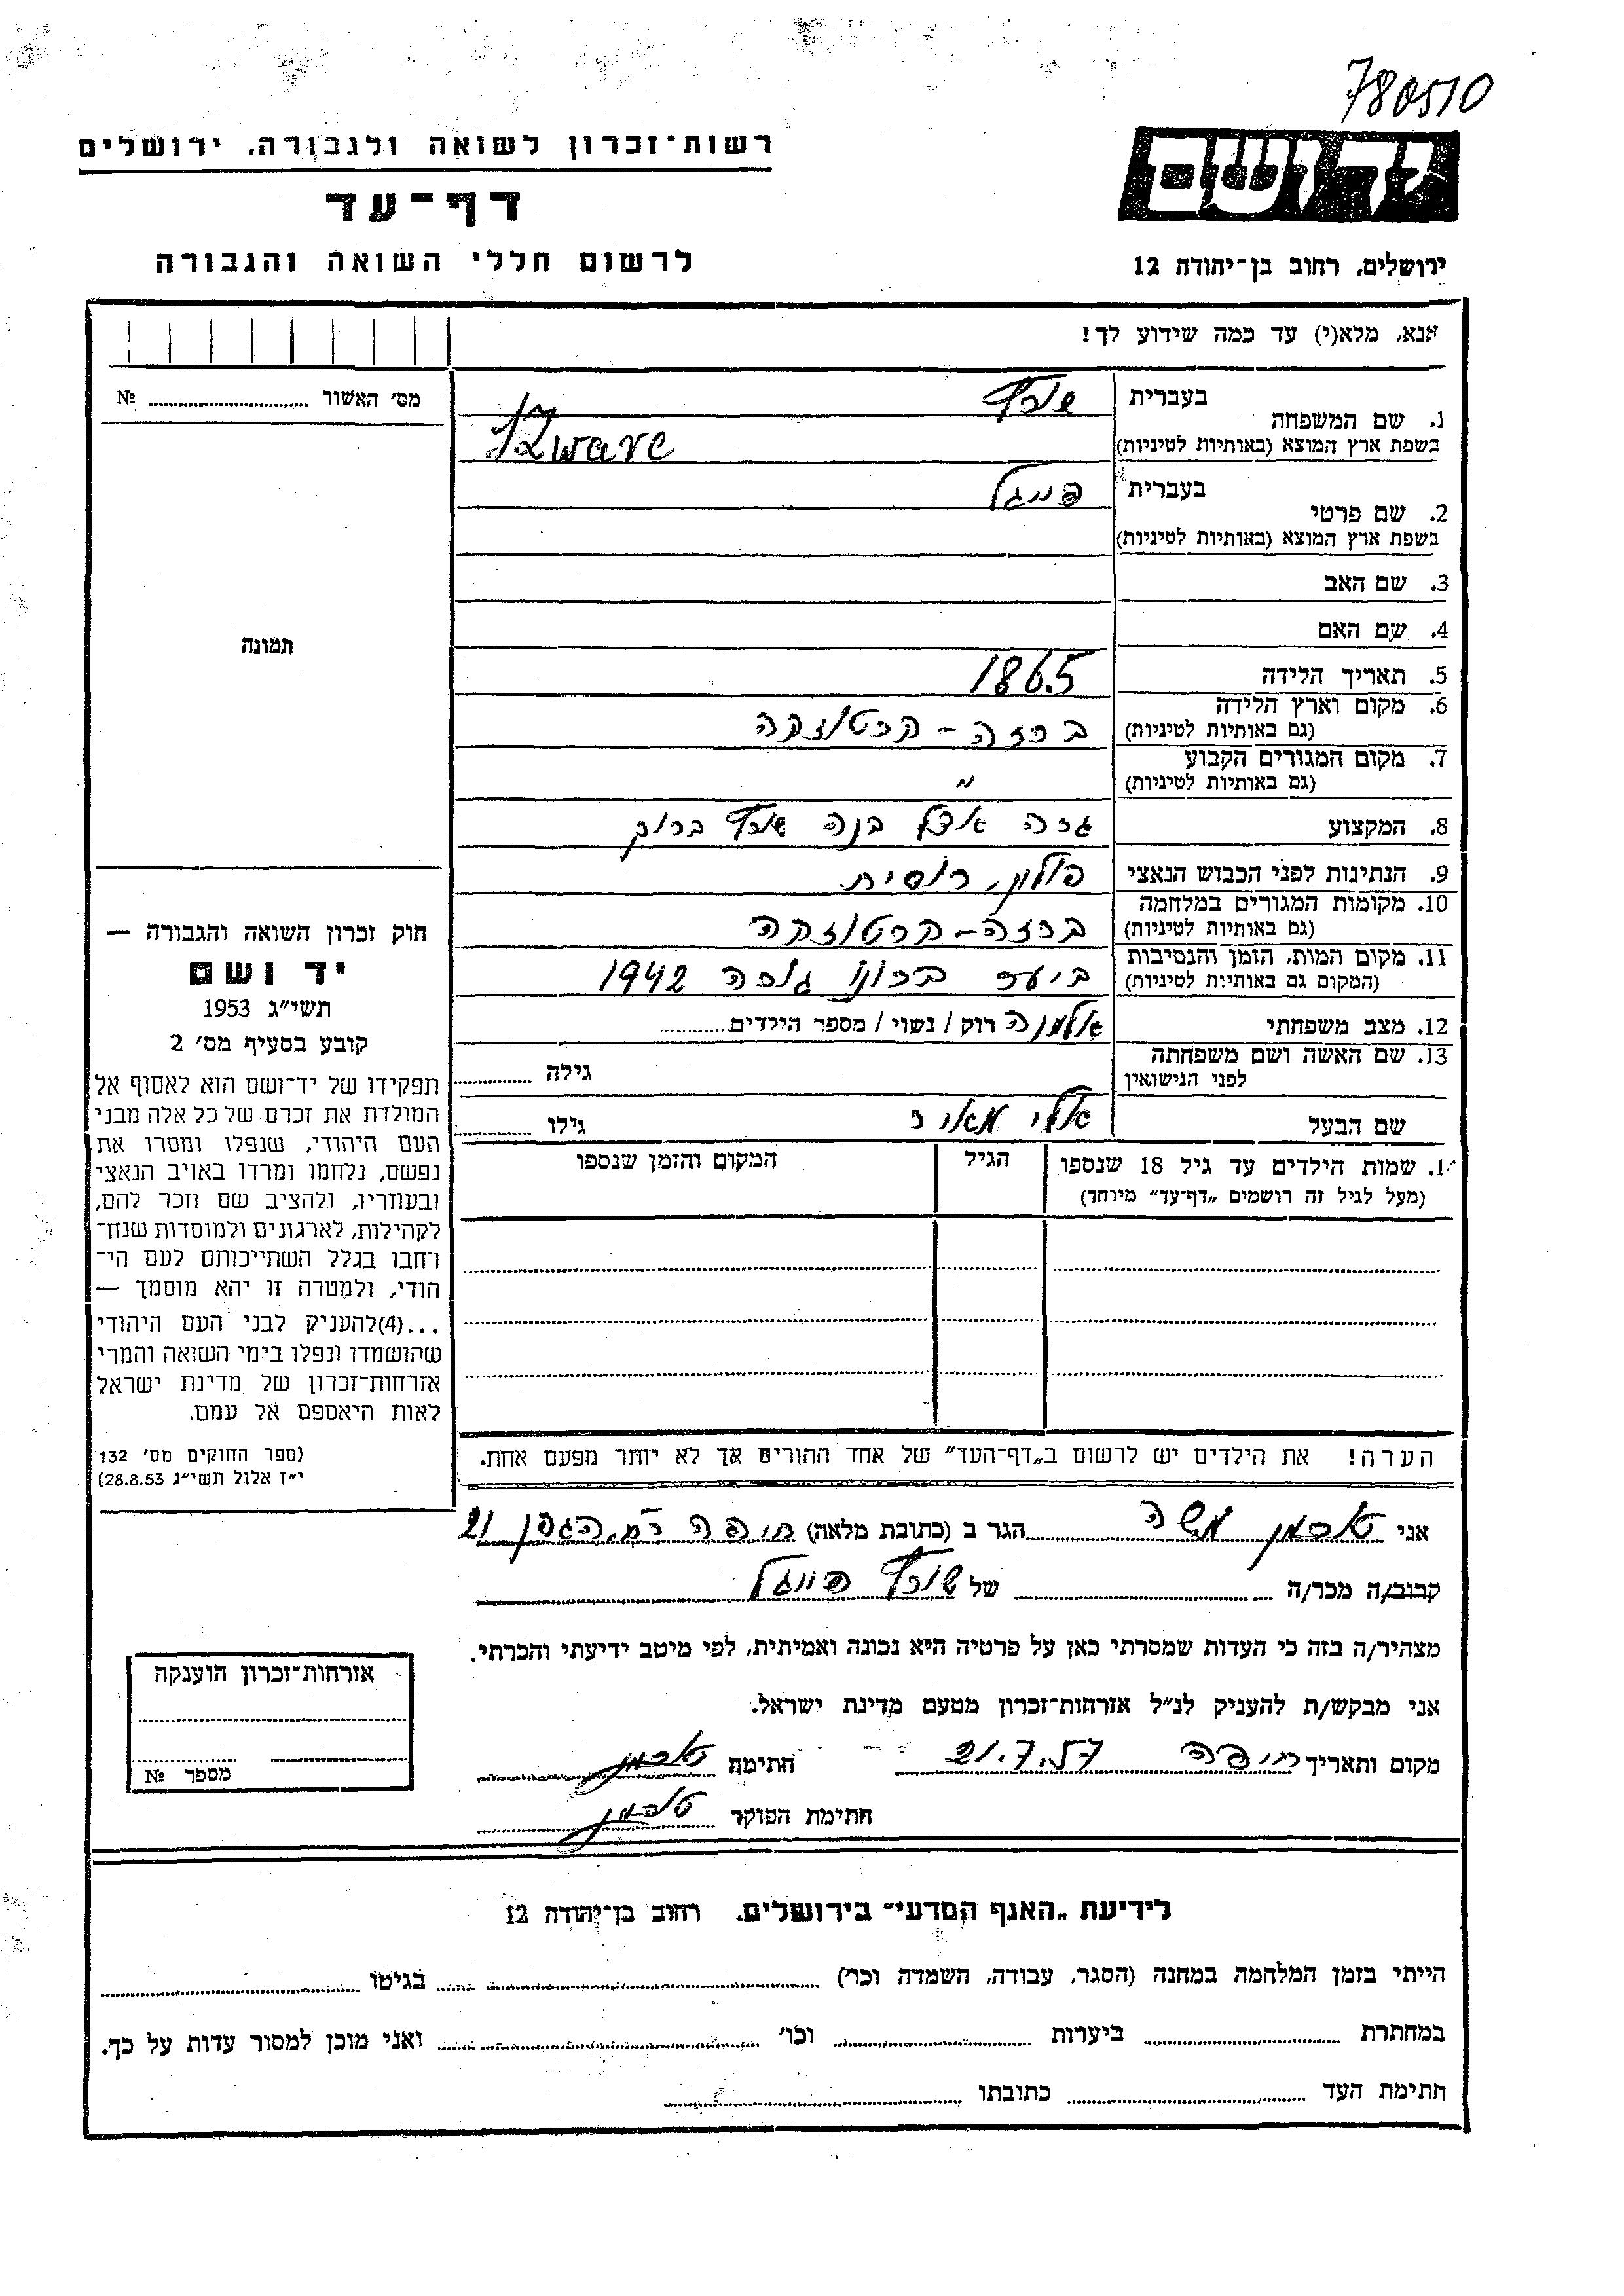 780510
רשות-זכרון לשואה ולגבורה, ירושלים
דף-עד
לרשום חללי השואה והגבורה
יד ושם
ירושלים, רחוב בן-יהודה 12
אנא, מלא(י) עד כמה שידוע לך!
מס׳ האשור № 
תמונה
1. שם המשפחה בעברית
בשפת ארץ המוצא (באותיות לטיניות)
2. שם פרטי בעברית פייגל
בשפת ארץ המוצא (באותיות לטיניות)
3. שם האב
4. שם האם
5. תאריך הלידה 1865
6. מקום וארץ הלידה ברזה - קרטוזקה
(גם באותיות לטיניות)
7. מקום המגורים הקבוע "
(גם באותיות לטיניות)
8. המקצוע גרה אצל בנה ברוך
9. הנתינות לפני הכבוש הנאצי פולנית
10. מקומות המגורים במלחמה ברזה - קרטוזקה
(גם באותיות לטיניות)
11. מקום המות, הזמן והנסיבות ביער ברונו גורה 1942
(המקום גם באותיות לטיניות)
12. מצב משפחתי אלמנה רוק / נשוי / מספר הילדים
13. שם האשה ושם משפחתה גילה
לפני הנישואין
שם הבעל גילו
1. שמות הילדים עד גיל 18 שנספו הגיל המקום והזמן שנספו
(מעל לגיל זה רושמים „דף-עד״ מיוחד)
הערה! את הילדים יש לרשום ב„דף-העד״ של אחד ההורים אך לא יותר מפעם אחת.
חוק זכרון השואה והגבורה —
יד ושם
תשי״ג 1953
קובע בסעיף מס׳ 2
תפקידו של יד-ושם הוא לאסוף אל
המולדת את זכרם של כל אלה מבני
העם היהודי, שנפלו ומסרו את
נפשם, נלחמו ומרדו באויב הנאצי
ובעוזריו, ולהציב שם וזכר להם,
לקהילות, לארגונים ולמוסדות שנח-
רחבו בגלל השתייכותם לעם הי-
הודי, ולמטרה זו יהא מוסמך —
...(4)להעניק לבני העם היהודי
שהושמדו ונפלו בימי השואה והמרי
אזרחות-זכרון של מדינת ישראל
לאות היאספם אל עמם.
(ספר החוקים מס׳ 132
י״ז אלול תשי״ג 28.8.53)
אני משה הגר ב (כתובת מלאה) חיפה רח. הגפן 21
קרוב/ה מכר/ה של פייגל
מצהיר/ה בזה כי העדות שמסרתי כאן על פרטיה היא נכונה ואמיתית, לפי מיטב ידיעתי והכרתי.
אני מבקש/ת להעניק לנ״ל אזרחות-זכרון מטעם מדינת ישראל.
מקום ותאריך חיפה 21.7.57 חתימה
חתימת הפוקד
אזרחות-זכרון הוענקה
מספר №
לידיעת „האגף המדעי״ בירושלים. רחוב בן-יהודה 12
הייתי בזמן המלחמה במחנה (הסגר, עבודה, השמדה וכו׳) בגיטו
במחתרת ביערות וכו׳ ואני מוכן למסור עדות על כך.
חתימת העד כתובתו